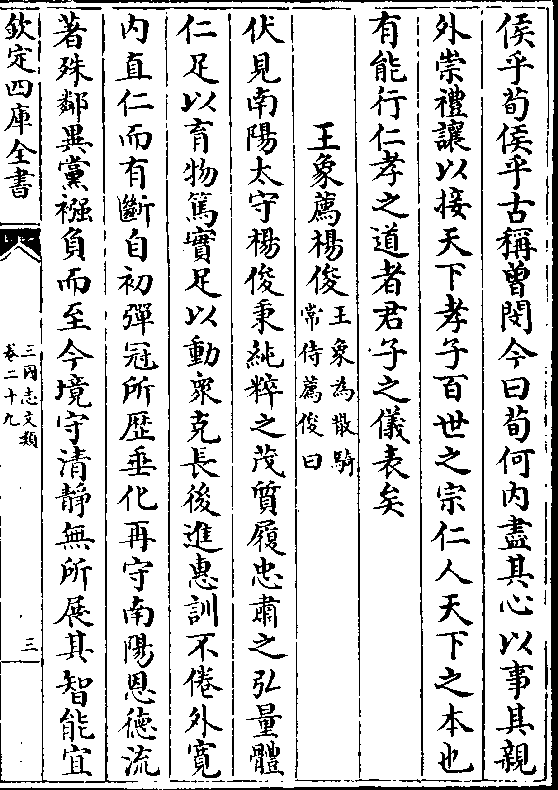 侯乎荀侯乎古稱曽閔今曰荀何内盡其心以事其親
外崇禮讓以接天下孝子百世之宗仁人天下之本也
有能行仁孝之道者君子之儀表矣
王象薦楊俊王象為散騎
常侍薦俊曰
伏見南陽太守楊俊秉純粹之茂質履忠肅之弘量體
仁足以育物篤實足以動衆克長後進惠訓不倦外寛
内直仁而有斷自初彈冠所歴垂化再守南陽恩德流
著殊鄰異黨襁負而至今境守清静無所展其智能宜
欽定四庫全書
三國志文類
卷二十九
三